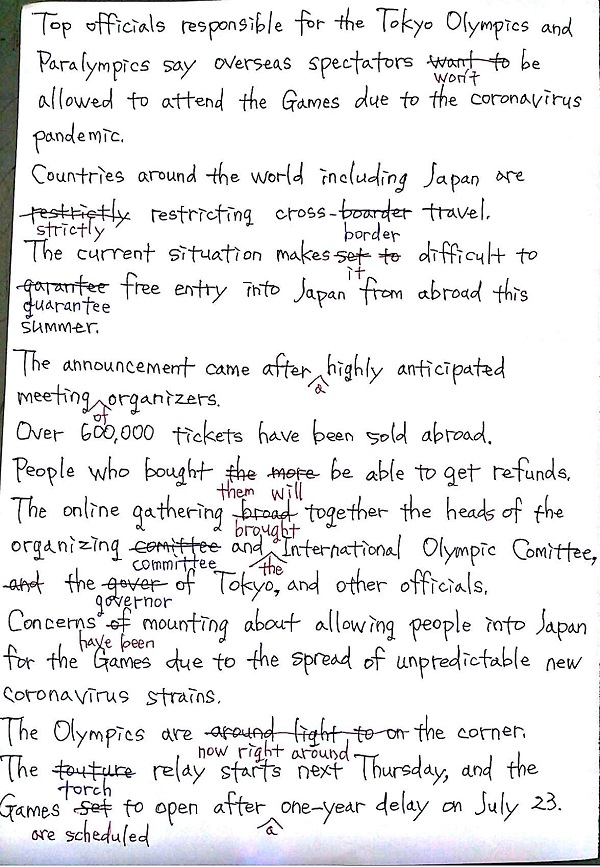 Top officials responsible for the Tokyo Olympics and
Paralympics say overseas spectators want to be
won't
allowed to attend the Games due to the coronavirus
pandemic.
Countries around the world including Japan are
restrictly restricting cross-boarder travel.
strictly border
The current situation makes set to difficult to
it
garantee free entry into Japan from abroad this
guarantee
summer.
The announcement came after highly anticipated
a
meeting organizers.
of
Over 600,000 tickets have been sold abroad.
People who bought the more be able to get refunds.
them will
The online gathering broad together the heads of the
brought
organizing comittee and International Olympic Comittee,
committee the
and the gover of Tokyo, and other officials.
governor
Concerns of mounting about allowing people into Japan
have been
for the Games due to the spread of unpredictable new
coronavirus strains.
The Olympics are around light to on the corner.
now right around
The touture relay starts next Thursday, and the
torch
Games set to open after one-year delay on July 23.
are scheduled a